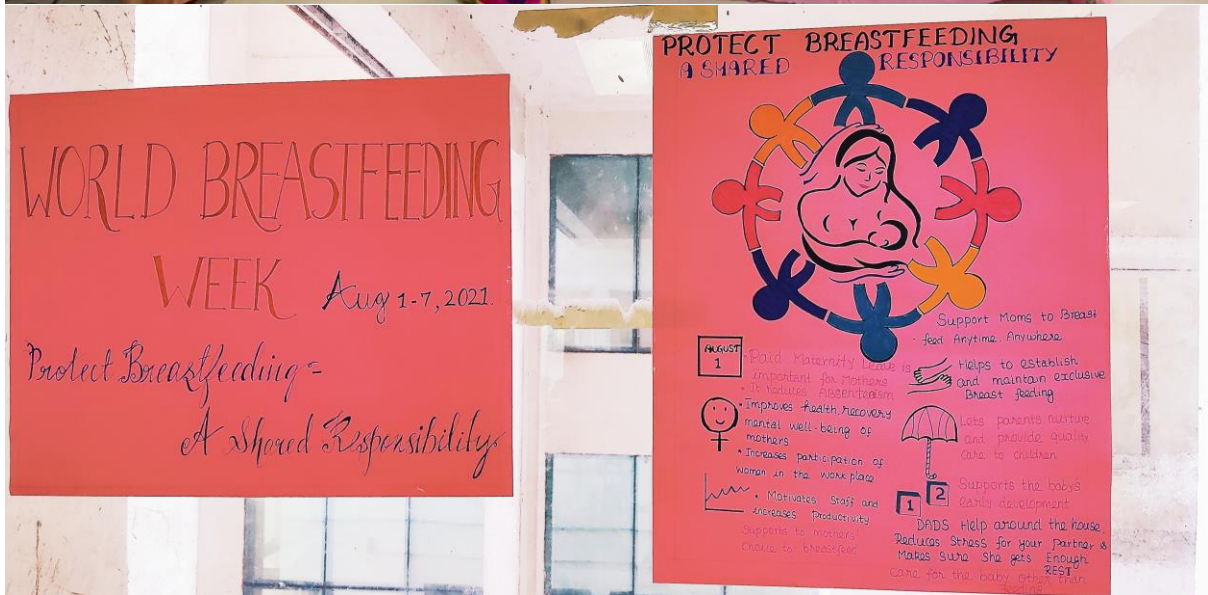 WORLD BREASTFEEDING
WEEK Aug 1-7, 2021.
Protect Breastfeeding =
A Shared Responsibility
PROTECT BREASTFEEDING
A SHARED RESPONSIBILITY
Support Moms to Breast
feed Anytime, Anywhere
AUGUST
1
• Paid Maternity Leave is
important for Mothers
• It Reduces Absenteeism
• Improves health, recovery
mental well-being of
mothers
• Increases participation of
women in the work place
• Motivates Staff and
increases Productivity
Supports to mothers'
choice to breastfeed
Helps to establish
and maintain exclusive
Breast feeding
Lets parents nurture
and provide quality
care to children
1 2
Supports the baby's
early development
DADS Help around the house,
Reduces Stress for your Partner &
Makes Sure She gets Enough
REST
care for the baby other than
feeding